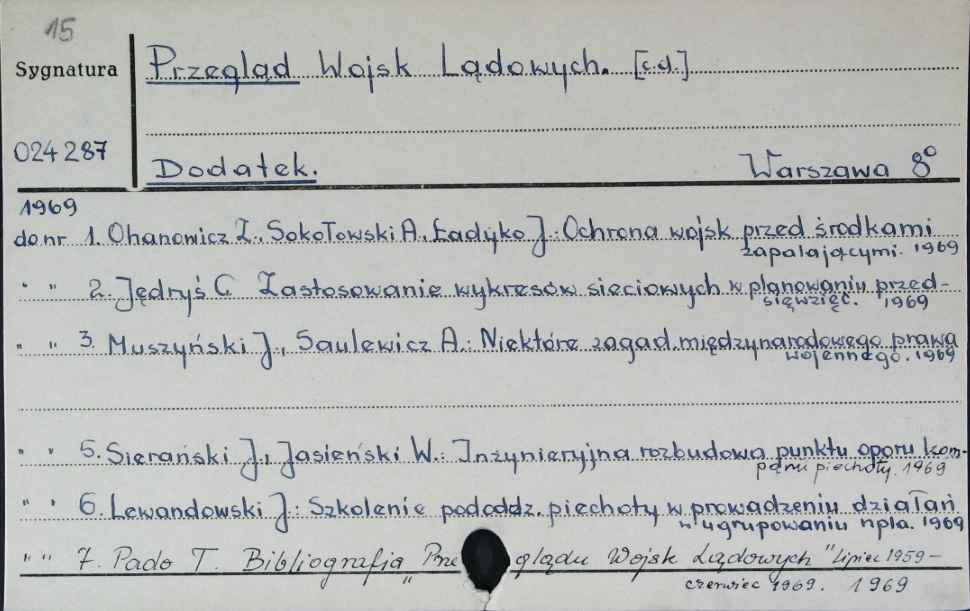 15
Sygnatura
Przegląd Wojsk Lądowych. [c.d.]
024287
Dodatek. Warszawa 8°
1969
do nr 1. Ohanowicz Z., Sokołowski A., Ładyko J.: Ochrona wojsk przed środkami
zapalającymi. 1969
" " 2. Jędryś C. Zastosowanie wykresów sieciowych w planowaniu przed-
sięwzięć. 1969
" " 3. Muszyński J., Saulewicz A.: Niektóre zagad. międzynarodowego prawa
wojennego. 1969
" " 5. Sierański J., Jasieński W.: Inżynieryjna rozbudowa punktu oporu kom-
panii piechoty. 1969
" " 6. Lewandowski J.: Szkolenie pododdz. piechoty w prowadzeniu działań
w ugrupowaniu npla. 1969
" " 7. Pado T. Bibliografia "Przeglądu Wojsk Lądowych" Lipiec 1959 –
czerwiec 1969. 1969